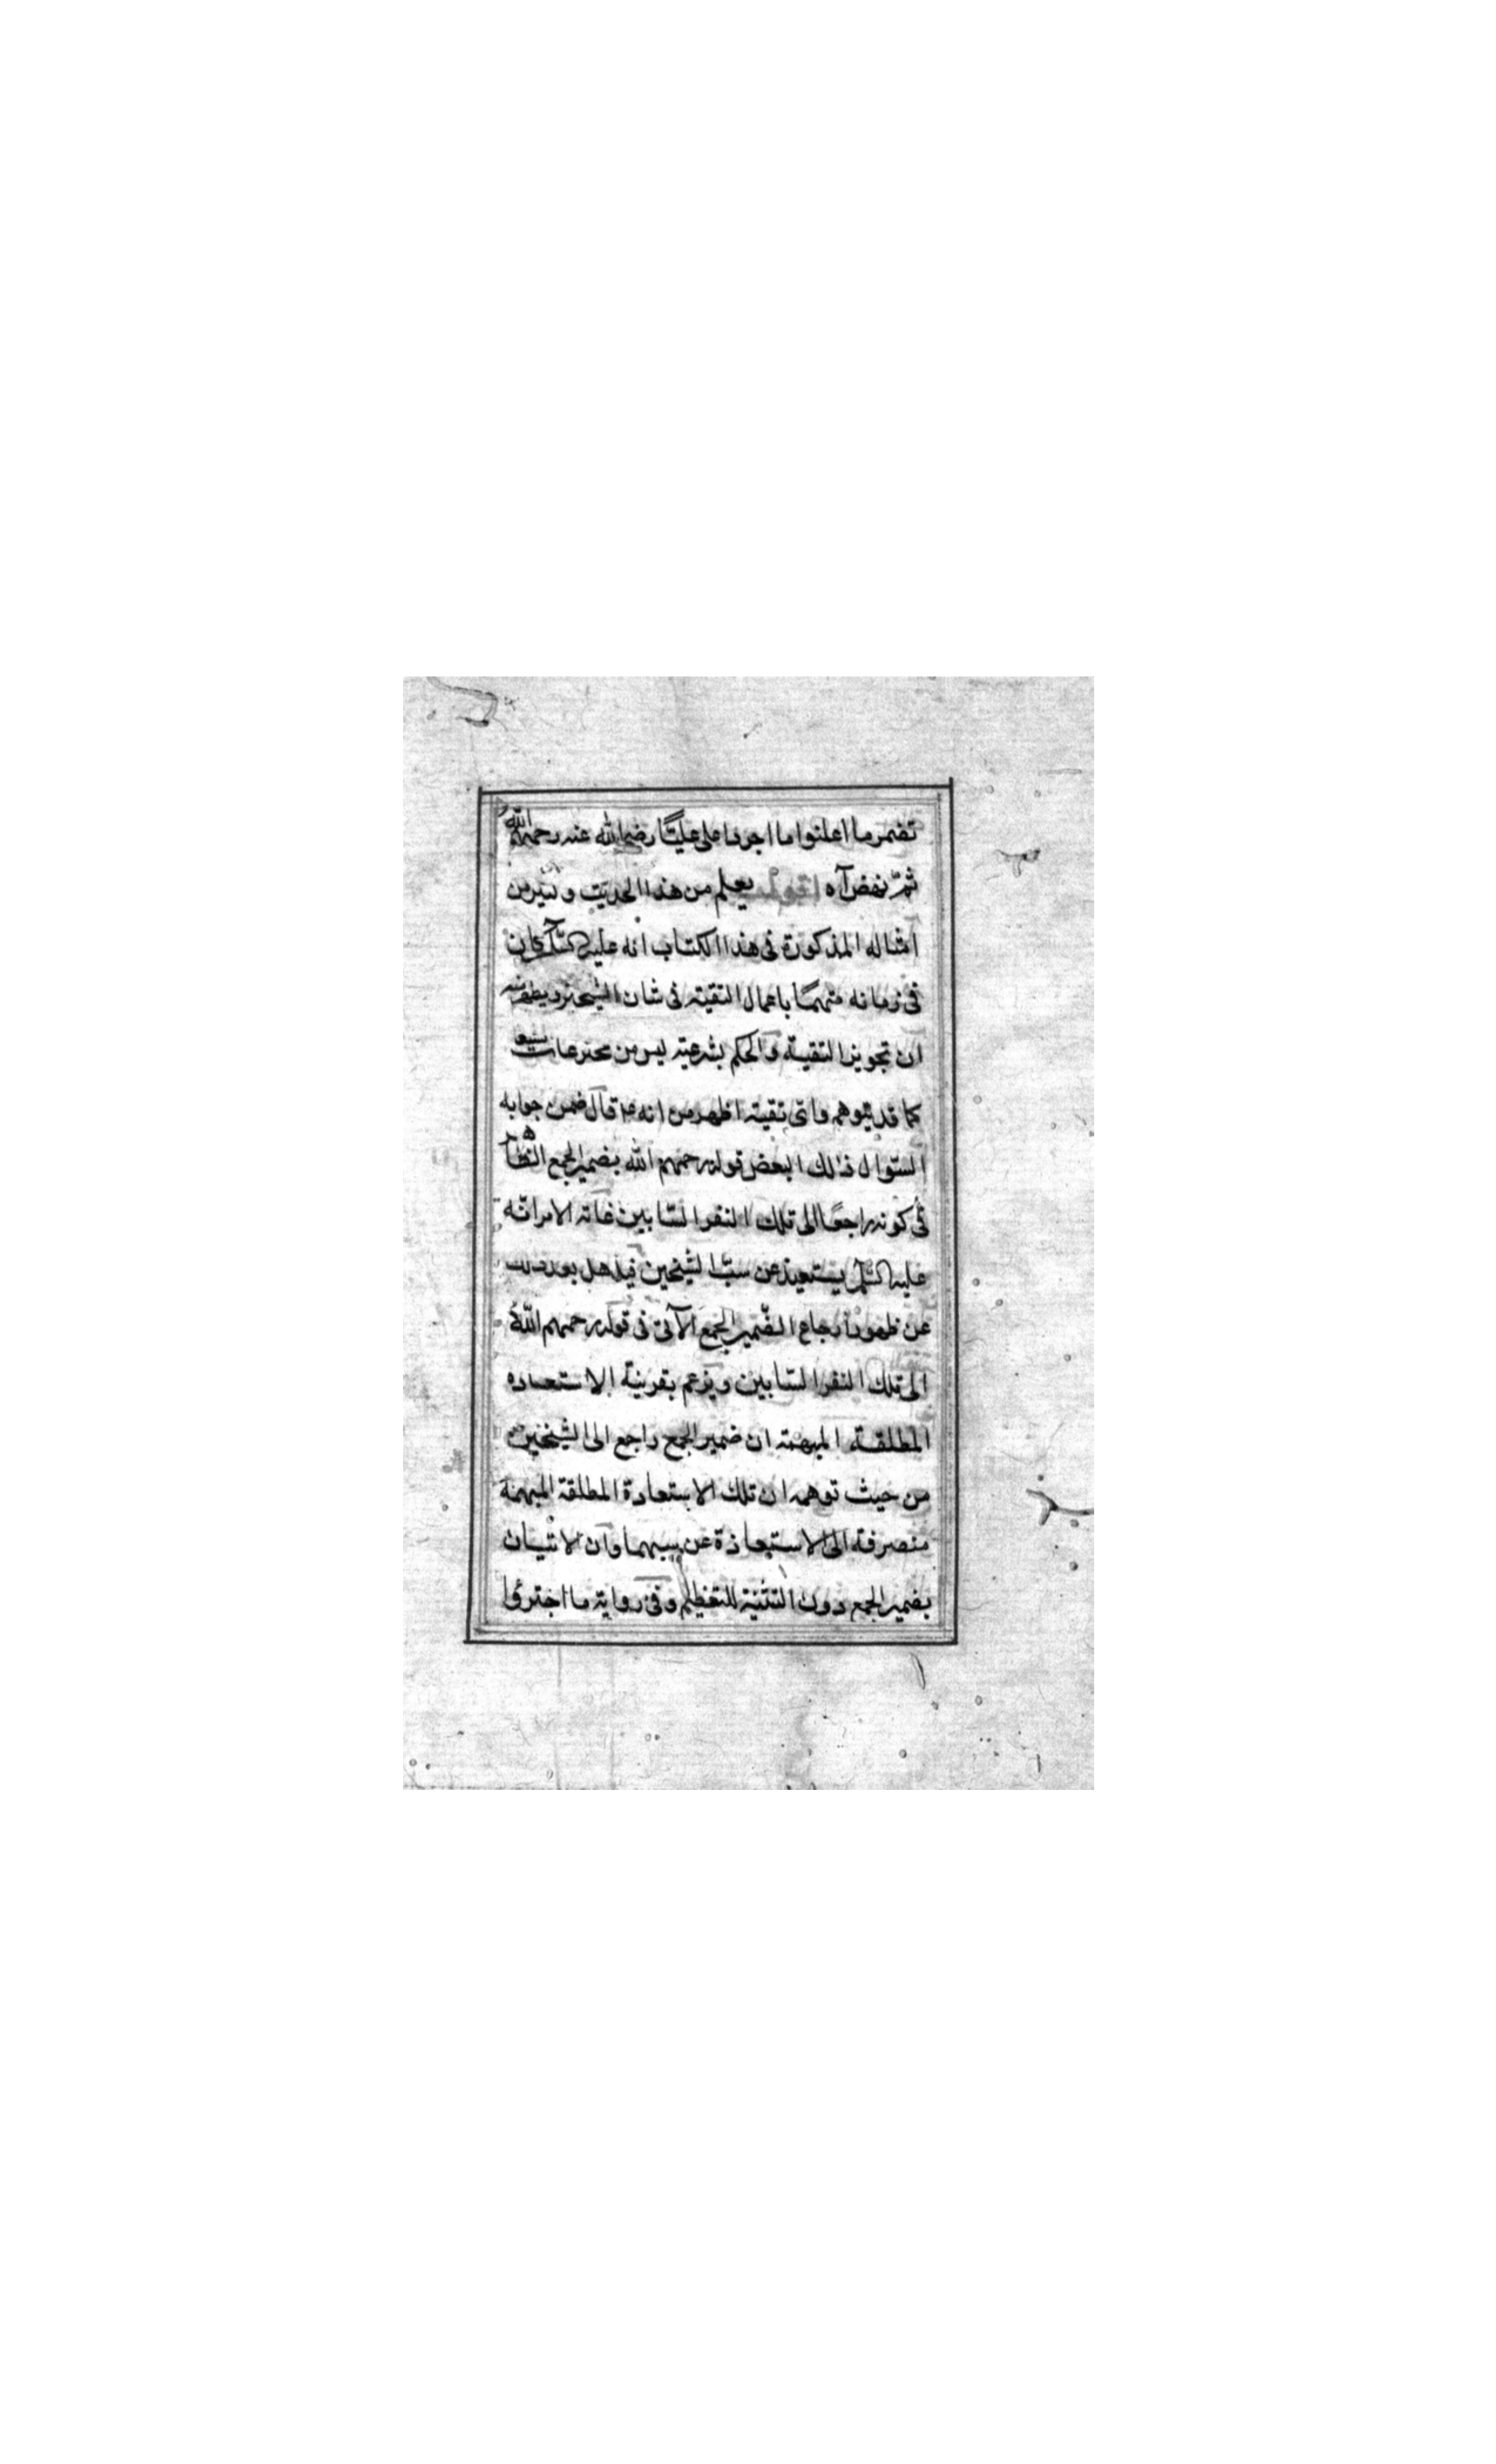 تضمر ما اعلنوا ما اجروا على عليّا رضى الله عنه رحمهم الله
ثمّ نهض آه اقول يعلم من هذا الحديث و كثير من
امثاله المذكورة فى هذا الكتاب انه عليه السّلم كان
فى زمانه متهمًا باعمال التقيته فى شان الشيخين
ان تجويز التقيته والحكم بشرعيته ليس من مخترعات
كما قد يتوهم واىّ تقيته اظهر من انه ع قال ضمن جوابه
السئوال ذلك البعض قوله رحمهم الله بضمير الجمع الظاهر
فى كونه راجعًا الى تلك النفر السّابين غاته الامر انّه
عليه السّلم يستعيذ عن سبّ الشيخين فيذهل بعد ذلك
عن ظهور ارجاع الضّمير الجمع الآتى فى قوله رحمهم اللّه
الى تلك النفر السّابين ويزعم بقرينة الاستعاده
المطلقة المبهمته ان ضمير الجمع راجع الى الشيخين
من حيث توهمه ان تلك الاستعادة المطلقة المبهمة
منصرفة الى الاستعاذة عن سبهما وان الاتيان
بضمير الجمع دون التثنية للتعظيم وفى رواية ما اجترؤا